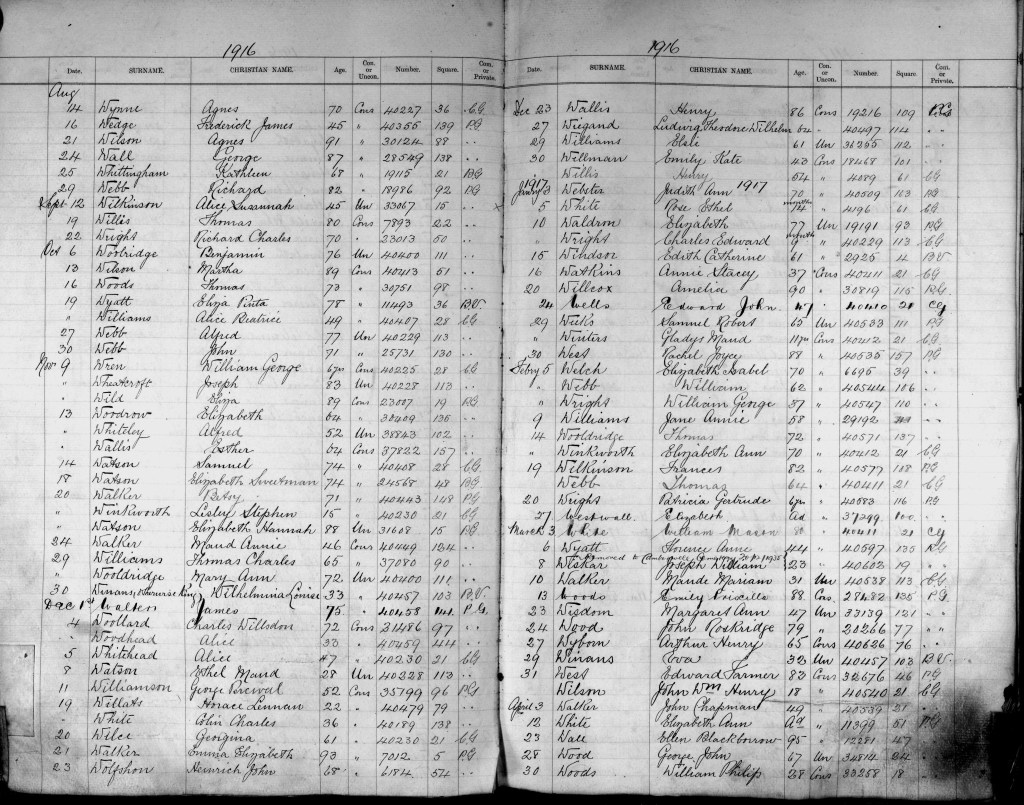 1916
Date. SURNAME. CHRISTIAN NAME. Age. Con. or Uncon. Number. Square. Com. or Private.
Aug
14 Wynne Agnes 70 Cons 40227 36 C.G
16 Wedge Frederick James 45 " 40355 139 P.G
21 Wilson Agnes 91 " 30124 88 " "
24 Wall George 87 " 28549 138 " "
25 Whittingham Kathleen 68 " 19115 21 P.G
29 Webb Richard 82 " 18986 92 P.G
Sept 12 Wilkinson Alice Susannah 45 Un 33067 15 " "
19 Willis Thomas 80 Cons 7893 22 " "
22 Wright Richard Charles 70 " 23013 50 " "
Oct 6 Worbridge Benjamin 76 Un 40400 111 " "
13 Wilson Martha 89 Cons 40413 51 " "
16 Woods Thomas 73 " 30751 98 " "
19 Wyatt Eliza Pinta 78 " 11493 36 B.V.
" Williams Alice Beatrice 49 " 40407 28 C.G
27 Webb Alfred 77 Un 40229 113 " "
30 Webb John 71 " 25731 130 " "
Nov 9 Wren William George 6yrs Cons 40225 28 C.G
" Wheatcroft Joseph 83 Un 40228 113 " "
" Wild Eliza 89 Cons 23007 19 P.G
13 Woodrow Elizabeth 64 " 30409 135 " "
" Whiteley Alfred 52 Un 38843 102 " "
" Wallis Esther 64 Cons 37822 157 " "
14 Watson Samuel 74 " 40408 28 C.G
18 Watson Elizabeth Sweetman 74 " 24568 48 P.G
20 Walker Betsy 71 " 40443 148 P.G
" Winkworth Lesley Stephen 15 " 40230 21 C.G
" Watson Elizabeth Hannah 88 Un 31608 15 P.G
24 Walker Maud Annie 46 Cons 40449 124 " "
29 Williams Thomas Charles 65 " 37080 90 " "
" Wooldridge Mary Ann 72 Un 40400 111 " "
30 Winans, Wilhelmina Louise 33 " 40457 103 B.V.
Dec 1st Walters James 75 " 40458 141 P.G
4 Woollard Charles Willsdon 72 Cons 31486 97 " "
" Woodhead Alice 33 " 40459 144 " "
5 Whitehead Alice 47 " 40230 21 C.G
8 Watson Ethel Maud 28 Un 40228 113 " "
11 Williamson George Percival 52 Cons 35799 96 P.G
19 Willats Horace Lennan 22 " 40479 79 " "
" White Colin Charles 36 " 40189 138 " "
20 Wilce Georgina 61 " 40230 21 C.G
21 Walker Emma Elizabeth 93 " 7012 5 P.G
23 Wolfshon Heinrich John 68 " 6184 54 " "
1916
Date. SURNAME. CHRISTIAN NAME. Age. Con. or Uncon. Number. Square Com. or Private.
Dec 23 Wallis Henry 86 Cons 19216 109
27 Wiegand Ludwig Theodore Wilhelm 64 " 40497 114 " "
29 Williams Elsie 61 Un 31255 112 " "
30 Willman Emily Kate 43 Cons 18468 101 " "
" Willis Henry 54 " 4089 61 C.G
1917 1917
Jany 3 Webster Judith Ann 70 " 40509 113 P.G
5 White Rose Ethel months " 4196 61 C.G
10 Waldron Elizabeth 77 Un 19191 93 P.G
" Wright Charles Edward 9 months " 40229 113 C.G
15 Windson Edith Catherine 61 " 2925 4 B.V
16 Watkins Annie Stacey 37 Cons 40411 21 C.G
20 Willcox Amelia 90 " 30819 115 P.G
24 Wells Edward John 47 " 40410 21 CG
29 Weeks Samuel Robert 65 Un 40533 111 P.G
" Winters Gladys Maud " 40412 21 C.G
30 West Rachel Joyce 88 " 40535 157 P.G
Feby 5 Welch Elizabeth Isabel 70 " 6695 39 " "
" Webb William 62 " 40544 106 " "
" Wright William George 37 " 40547 110 " "
9 Williams Jane Annie 58 " 29192 " "
14 Wooldridge Thomas 72 " 40571 137 " "
" Winkworth Elizabeth Ann 70 " 40412 21 C.G
19 Wilkinson Frances 82 " 40577 108 P.G
Webb Thomas 64 " 40411 21 C.G
20 Wright Patricia Gertrude 6yrs " 40583 116 P.G
27 Westwall Elizabeth Ad " 37299 100 " "
March 3 White William Mason " 40411 21 CG
6 Wyatt Florence Anne 44 " 40597 135 P.G
Removed to Camberwell Cemetery
8 Wiskar Joseph William 23 " 40602 19 " "
10 Walker Maude Mariam 31 Un 40538 113 C.G
13 Woods Emily Priscilla 88 Cons 28482 135 P.G
23 Wisdom Margaret Ann 47 Un 33139 121 " "
24 Wood John Roskridge 79 " 20266 77 " "
27 Wyborn Arthur Henry 65 Cons 40626 76 " "
29 Winans Eva 32 Un 40457 103 B.V
31 West Edward Farmer 83 Cons 32676 46 P.G
Wilson John Wm Henry 18 " 40540 21 C.G
April 3 Walker John Chapman 49 " 40539 21 " "
12 White Elizabeth Ann Ad " 11399 51 P.G
23 Wall Ellen Blackborrow 95 " 12281 47 " "
28 Wood George John 67 Un 34814 24 " "
30 Woods William Philip 28 Cons 33258 18 " "